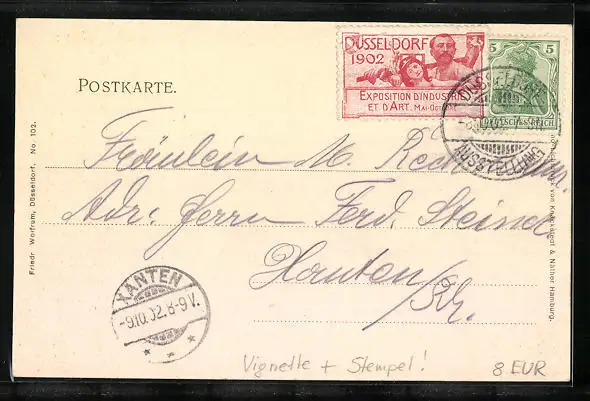 POSTKARTE.
DÜSSELDORF
1902
EXPOSITION D'INDUSTRIE
ET D'ART. MAI-OCT
5 5
DEUTSCHES REICH
DÜSSELDORF
AUSSTELLUNG
Fräulein M.
Adr. Herrn Ferd.
Xanten
XANTEN
-9.10.02.8-9V.
Vignette + Stempel!
8 EUR
Friedr. Wolfrum, Düsseldorf. No. 102.
von Knackstedt & Näther Hamburg.